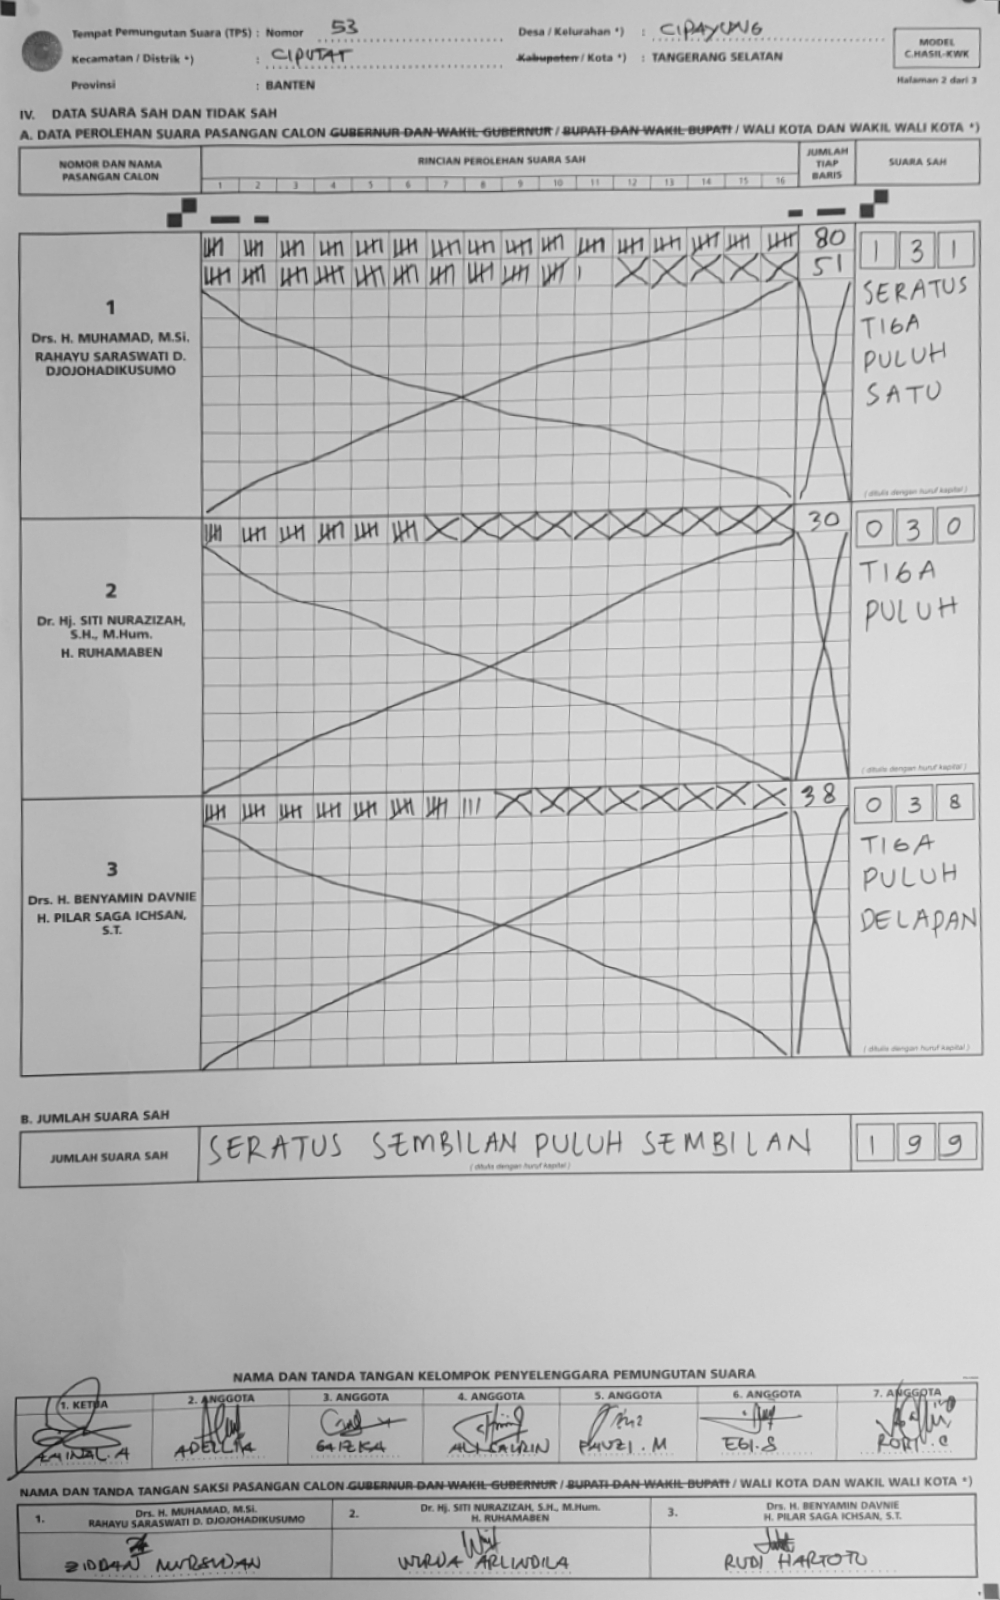 Tempat Pemungutan Suara (TPS) : Nomor 53 Desa / Kelurahan *) : CIPAYUNG
Kecamatan / Distrik *) : CIPUTAT Kabupaten / Kota *) : TANGERANG SELATAN
Provinsi : BANTEN
MODEL
C.HASIL-KWK
Halaman 2 dari 3
IV. DATA SUARA SAH DAN TIDAK SAH
A. DATA PEROLEHAN SUARA PASANGAN CALON GUBERNUR DAN WAKIL GUBERNUR / BUPATI DAN WAKIL BUPATI / WALI KOTA DAN WAKIL WALI KOTA *)
NOMOR DAN NAMA
PASANGAN CALON
RINCIAN PEROLEHAN SUARA SAH
1 2 3 4 5 6 7 8 9 10 11 12 13 14 15 16
JUMLAH
TIAP
BARIS
SUARA SAH
1
Drs. H. MUHAMAD, M.Si.
RAHAYU SARASWATI D.
DJOJOHADIKUSUMO
80
51
1 3 1
SERATUS
TIGA
PULUH
SATU
( ditulis dengan huruf kapital )
2
Dr. Hj. SITI NURAZIZAH,
S.H., M.Hum.
H. RUHAMABEN
30
0 3 0
TIGA
PULUH
( ditulis dengan huruf kapital )
3
Drs. H. BENYAMIN DAVNIE
H. PILAR SAGA ICHSAN,
S.T.
38
0 3 8
TIGA
PULUH
DELAPAN
( ditulis dengan huruf kapital )
B. JUMLAH SUARA SAH
JUMLAH SUARA SAH
SERATUS SEMBILAN PULUH SEMBILAN
( ditulis dengan huruf kapital )
1 9 9
NAMA DAN TANDA TANGAN KELOMPOK PENYELENGGARA PEMUNGUTAN SUARA
1. KETUA 2. ANGGOTA 3. ANGGOTA 4. ANGGOTA 5. ANGGOTA 6. ANGGOTA 7. ANGGOTA
FAUZI. M EGI.S
NAMA DAN TANDA TANGAN SAKSI PASANGAN CALON GUBERNUR DAN WAKIL GUBERNUR / BUPATI DAN WAKIL BUPATI / WALI KOTA DAN WAKIL WALI KOTA *)
1. Drs. H. MUHAMAD, M.Si.
RAHAYU SARASWATI D. DJOJOHADIKUSUMO
2. Dr. Hj. SITI NURAZIZAH, S.H., M.Hum.
H. RUHAMABEN
3. Drs. H. BENYAMIN DAVNIE
H. PILAR SAGA ICHSAN, S.T.
ZIDDAN
ARLINDILA
RUDI HARTOTO